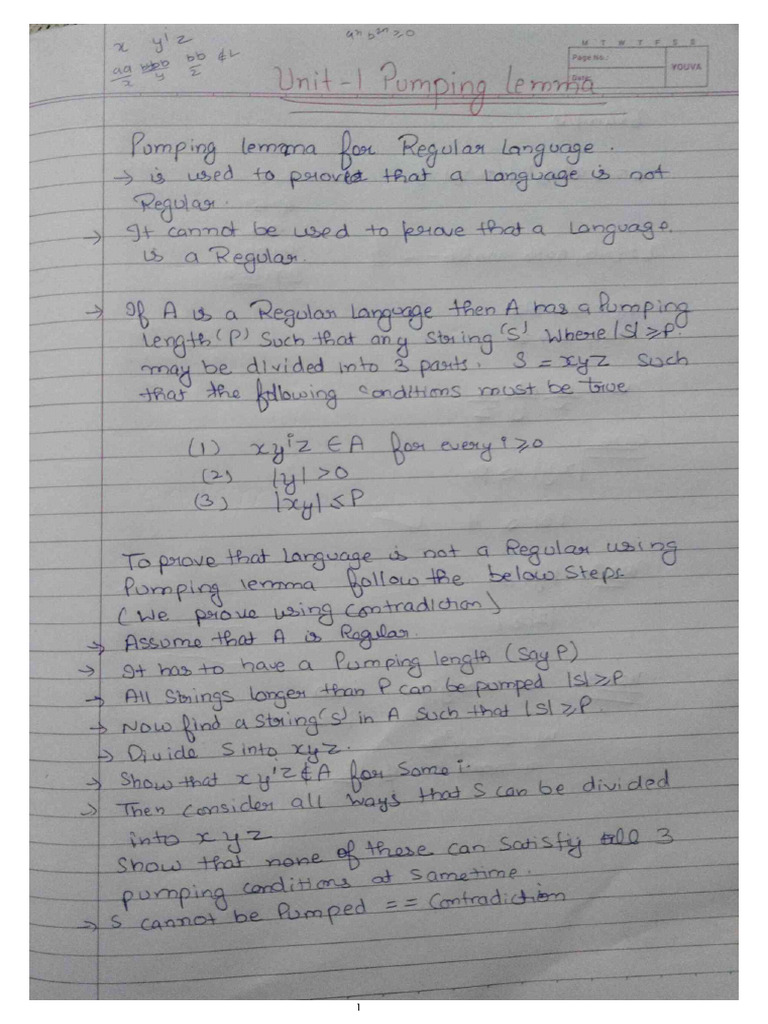 x y^i z
a^n b^2n ≥0
aa bbbb bb ∉ L
x y z
M T W T F S S
Page No.:
Date:
YOUVA
Unit-1 Pumping lemma
Pumping lemma for Regular Language.
→ is used to proved that a Language is not
Regular.
→ It cannot be used to prove that a Language
is a Regular.
→ If A is a Regular Language then A has a Pumping
Length 'P' Such that any String 'S' where |S| ≥ P.
may be divided into 3 parts. S = xyz such
that the following conditions must be true
(1) xy^i z ∈ A for every i ≥ 0
(2) |y| > 0
(3) |xy| ≤ P
To prove that Language is not a Regular using
Pumping lemma follow the below Steps
(We prove using contradiction)
→ Assume that A is Regular.
→ It has to have a Pumping length (Say P)
→ All Strings longer than P can be pumped |S| ≥ P
→ Now find a string 'S' in A such that |S| ≥ P.
→ Divide S into xyz.
→ Show that xy^i z ∉ A for some i.
→ Then consider all ways that S can be divided
into x y z
Show that none of these can satisfy all 3
pumping conditions at sametime.
→ S cannot be Pumped == Contradiction
1